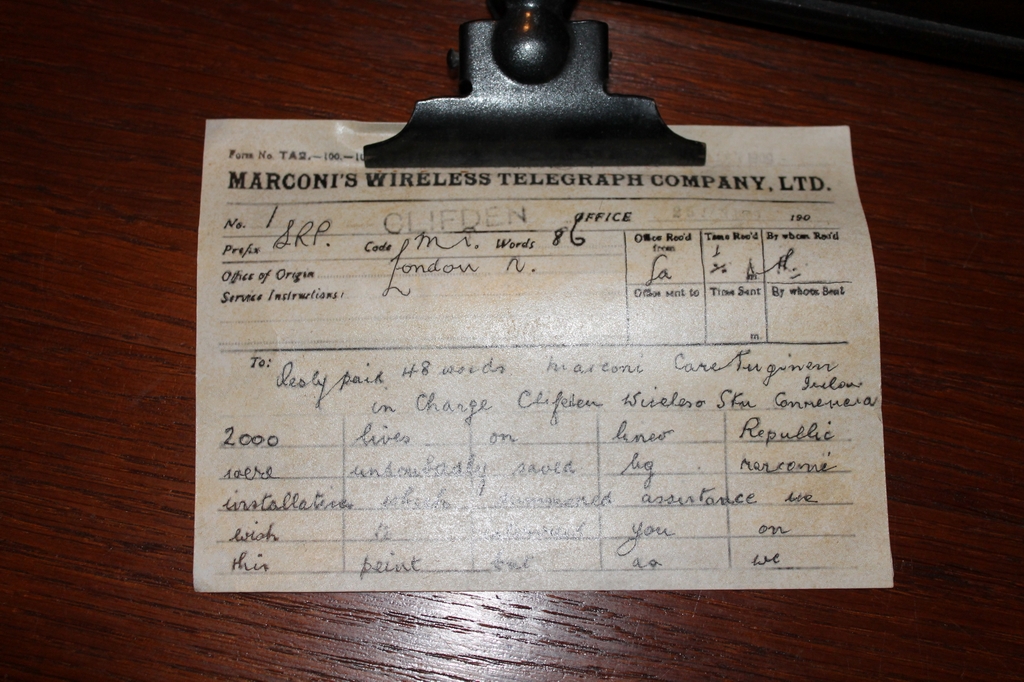 Form No. TA2.—100.—
MARCONI'S WIRELESS TELEGRAPH COMPANY, LTD.
No. 1 CLIFDEN OFFICE 25 190
Prefix SRP. Code Words 86
Office Rec'd from Time Rec'd By whom Rec'd
Office of Origin London
Service Instructions:
Office sent to Time Sent By whom Sent
m.
To: Reply paid 48 words Marconi Care Enginen
in Charge Clifden Wireless Stn Connemara
2000 lives on liner Republic
were undoubtedly saved by Marconi
installation which summoned assistance we
wish to you on
this point but as we